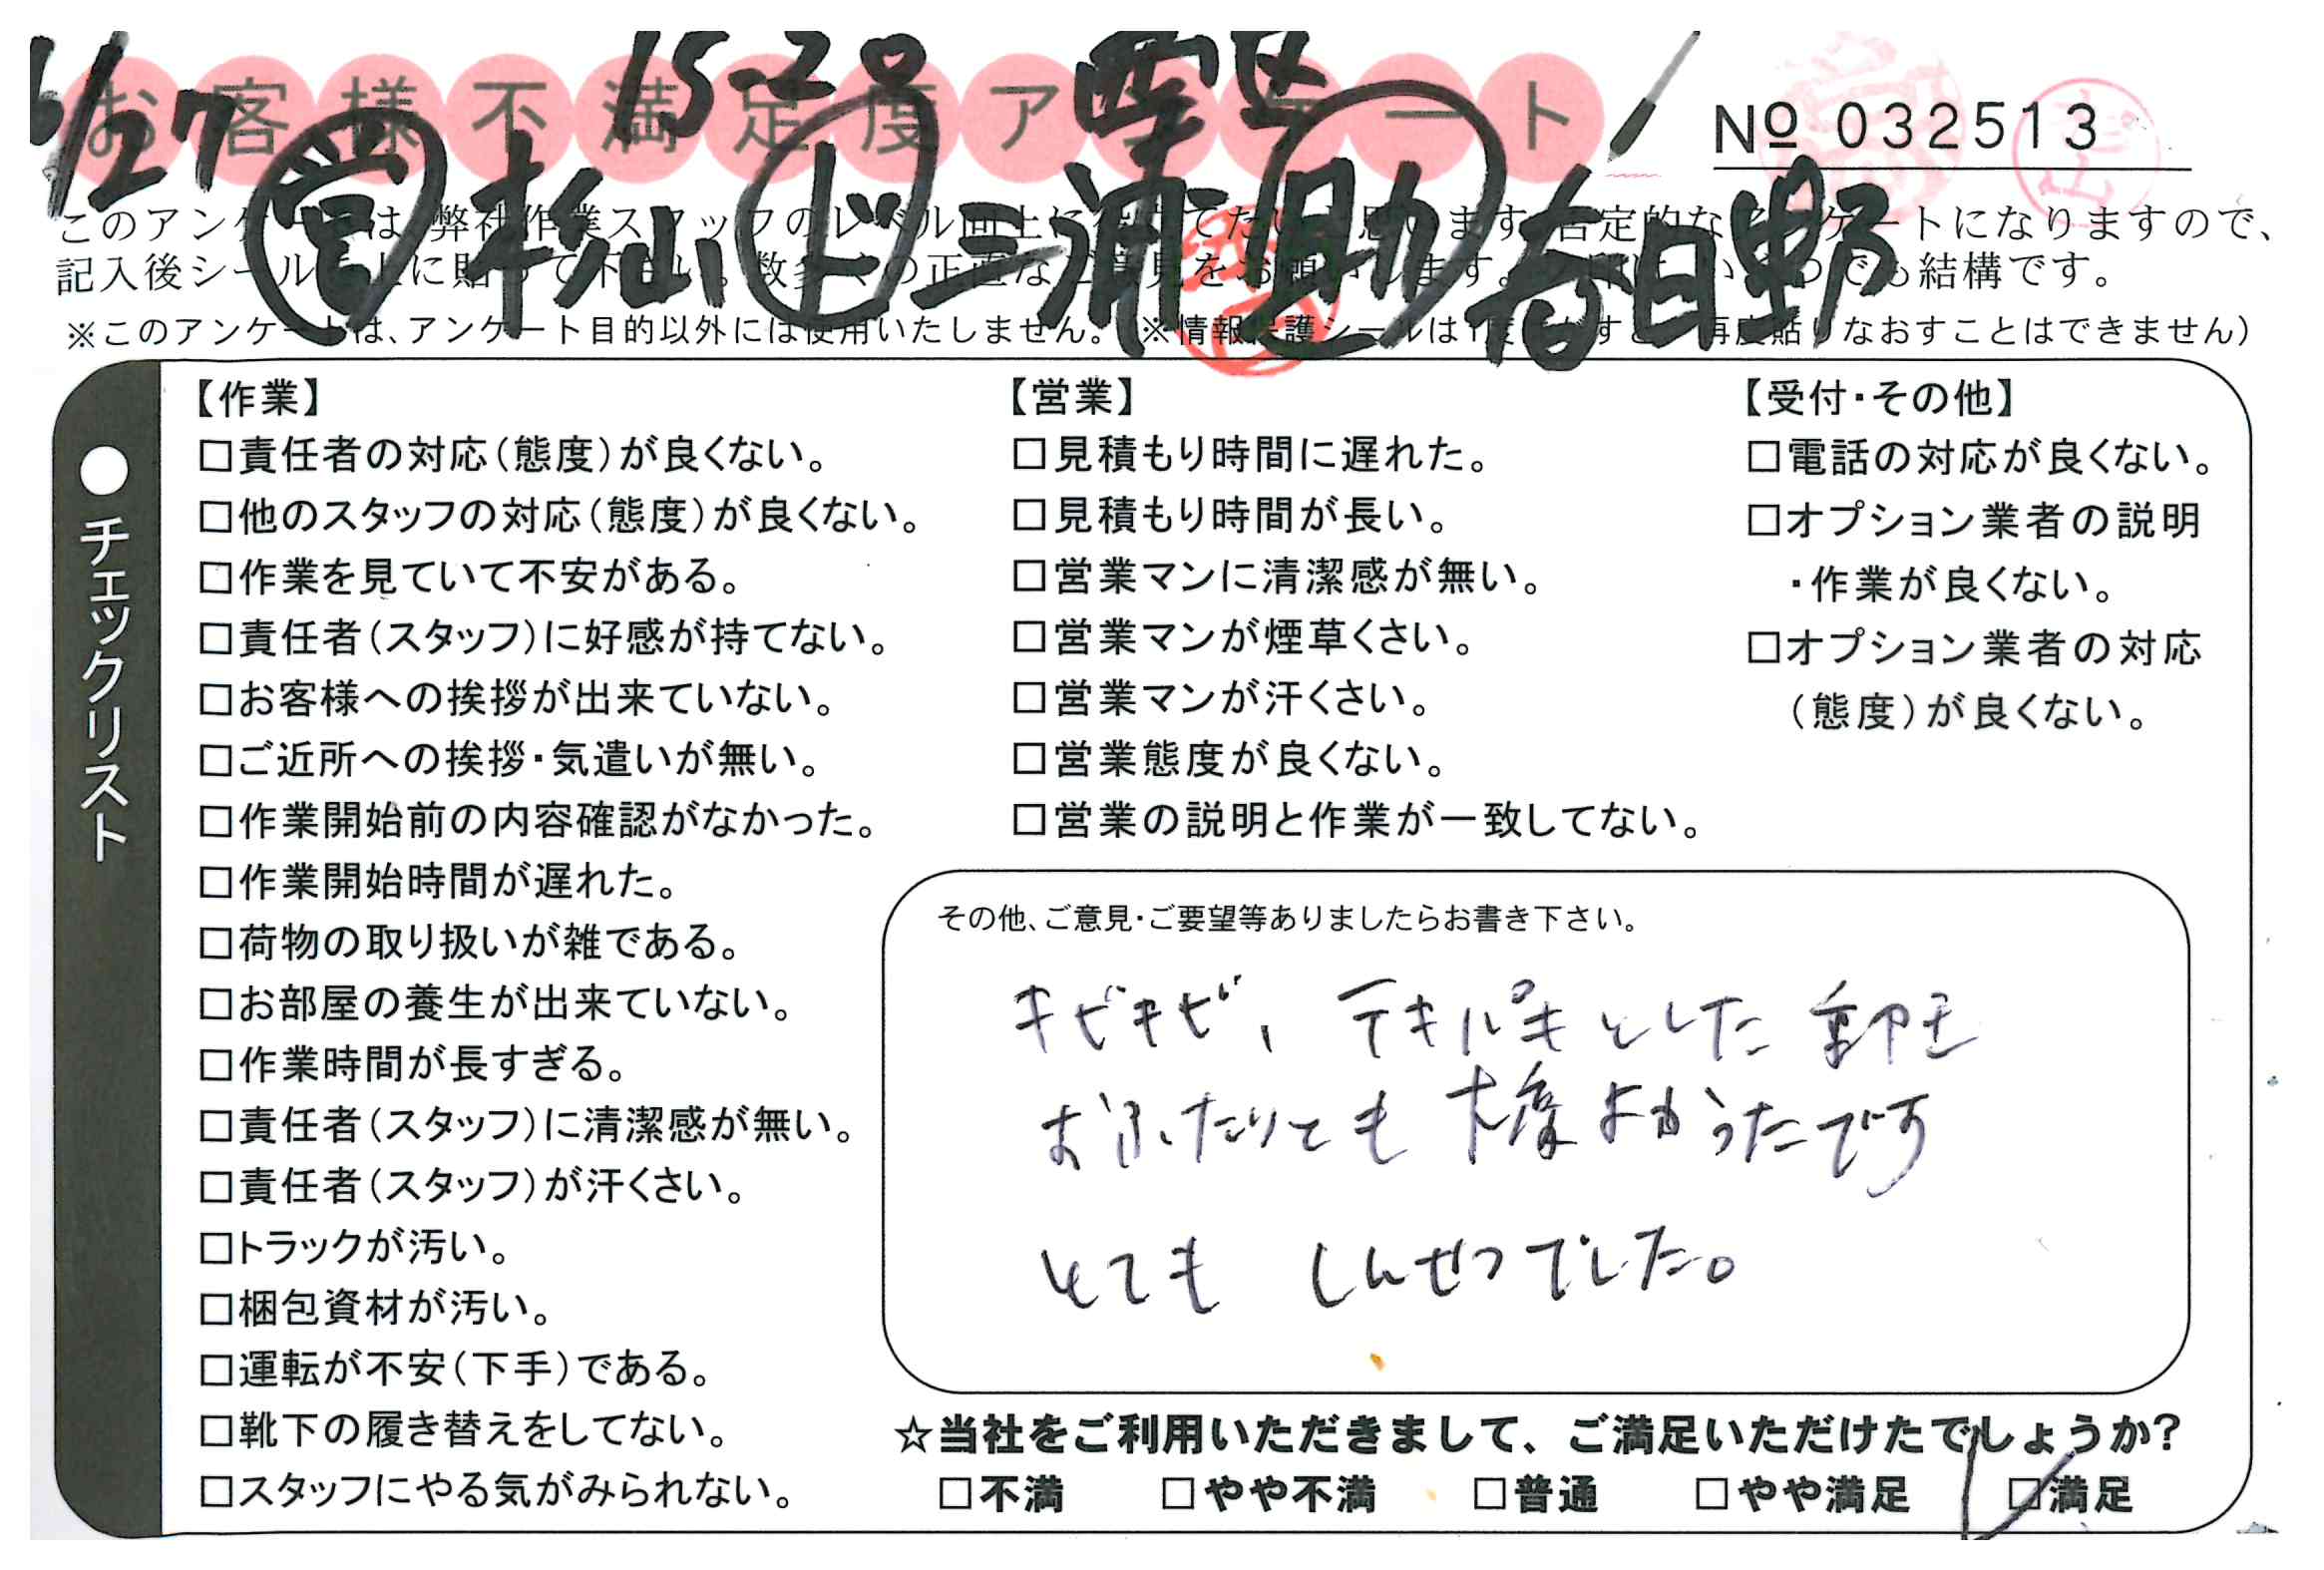 6/27 15-20 西区
お客様不満足度アンケート
№ 032513
営 杉山 ド 三浦 助 春日野
このアンケートは、弊社作業スタッフのレベル向上に役立てたいと思います。否定的なアンケートになりますので、
記入後シールを上に貼って下さい。数多くの正直なご意見をお願いします。
※このアンケートは、アンケート目的以外には使用いたしません。(※情報保護シールは1度はがすと、再度貼りなおすことはできません)
●チェックリスト
【作業】
□責任者の対応(態度)が良くない。
□他のスタッフの対応(態度)が良くない。
□作業を見ていて不安がある。
□責任者(スタッフ)に好感が持てない。
□お客様への挨拶が出来ていない。
□ご近所への挨拶・気遣いが無い。
□作業開始前の内容確認がなかった。
□作業開始時間が遅れた。
□荷物の取り扱いが雑である。
□お部屋の養生が出来ていない。
□作業時間が長すぎる。
□責任者(スタッフ)に清潔感が無い。
□責任者(スタッフ)が汗くさい。
□トラックが汚い。
□梱包資材が汚い。
□運転が不安(下手)である。
□靴下の履き替えをしてない。
□スタッフにやる気がみられない。
【営業】
□見積もり時間に遅れた。
□見積もり時間が長い。
□営業マンに清潔感が無い。
□営業マンが煙草くさい。
□営業マンが汗くさい。
□営業態度が良くない。
□営業の説明と作業が一致してない。
【受付・その他】
□電話の対応が良くない。
□オプション業者の説明
・作業が良くない。
□オプション業者の対応
(態度)が良くない。
その他、ご意見・ご要望等ありましたらお書き下さい。
キビキビ、テキパキとした
おふたりとも 大変よかったです
とても しんせつでした。
☆当社をご利用いただきまして、ご満足いただけたでしょうか?
□不満 □やや不満 □普通 □やや満足 □満足